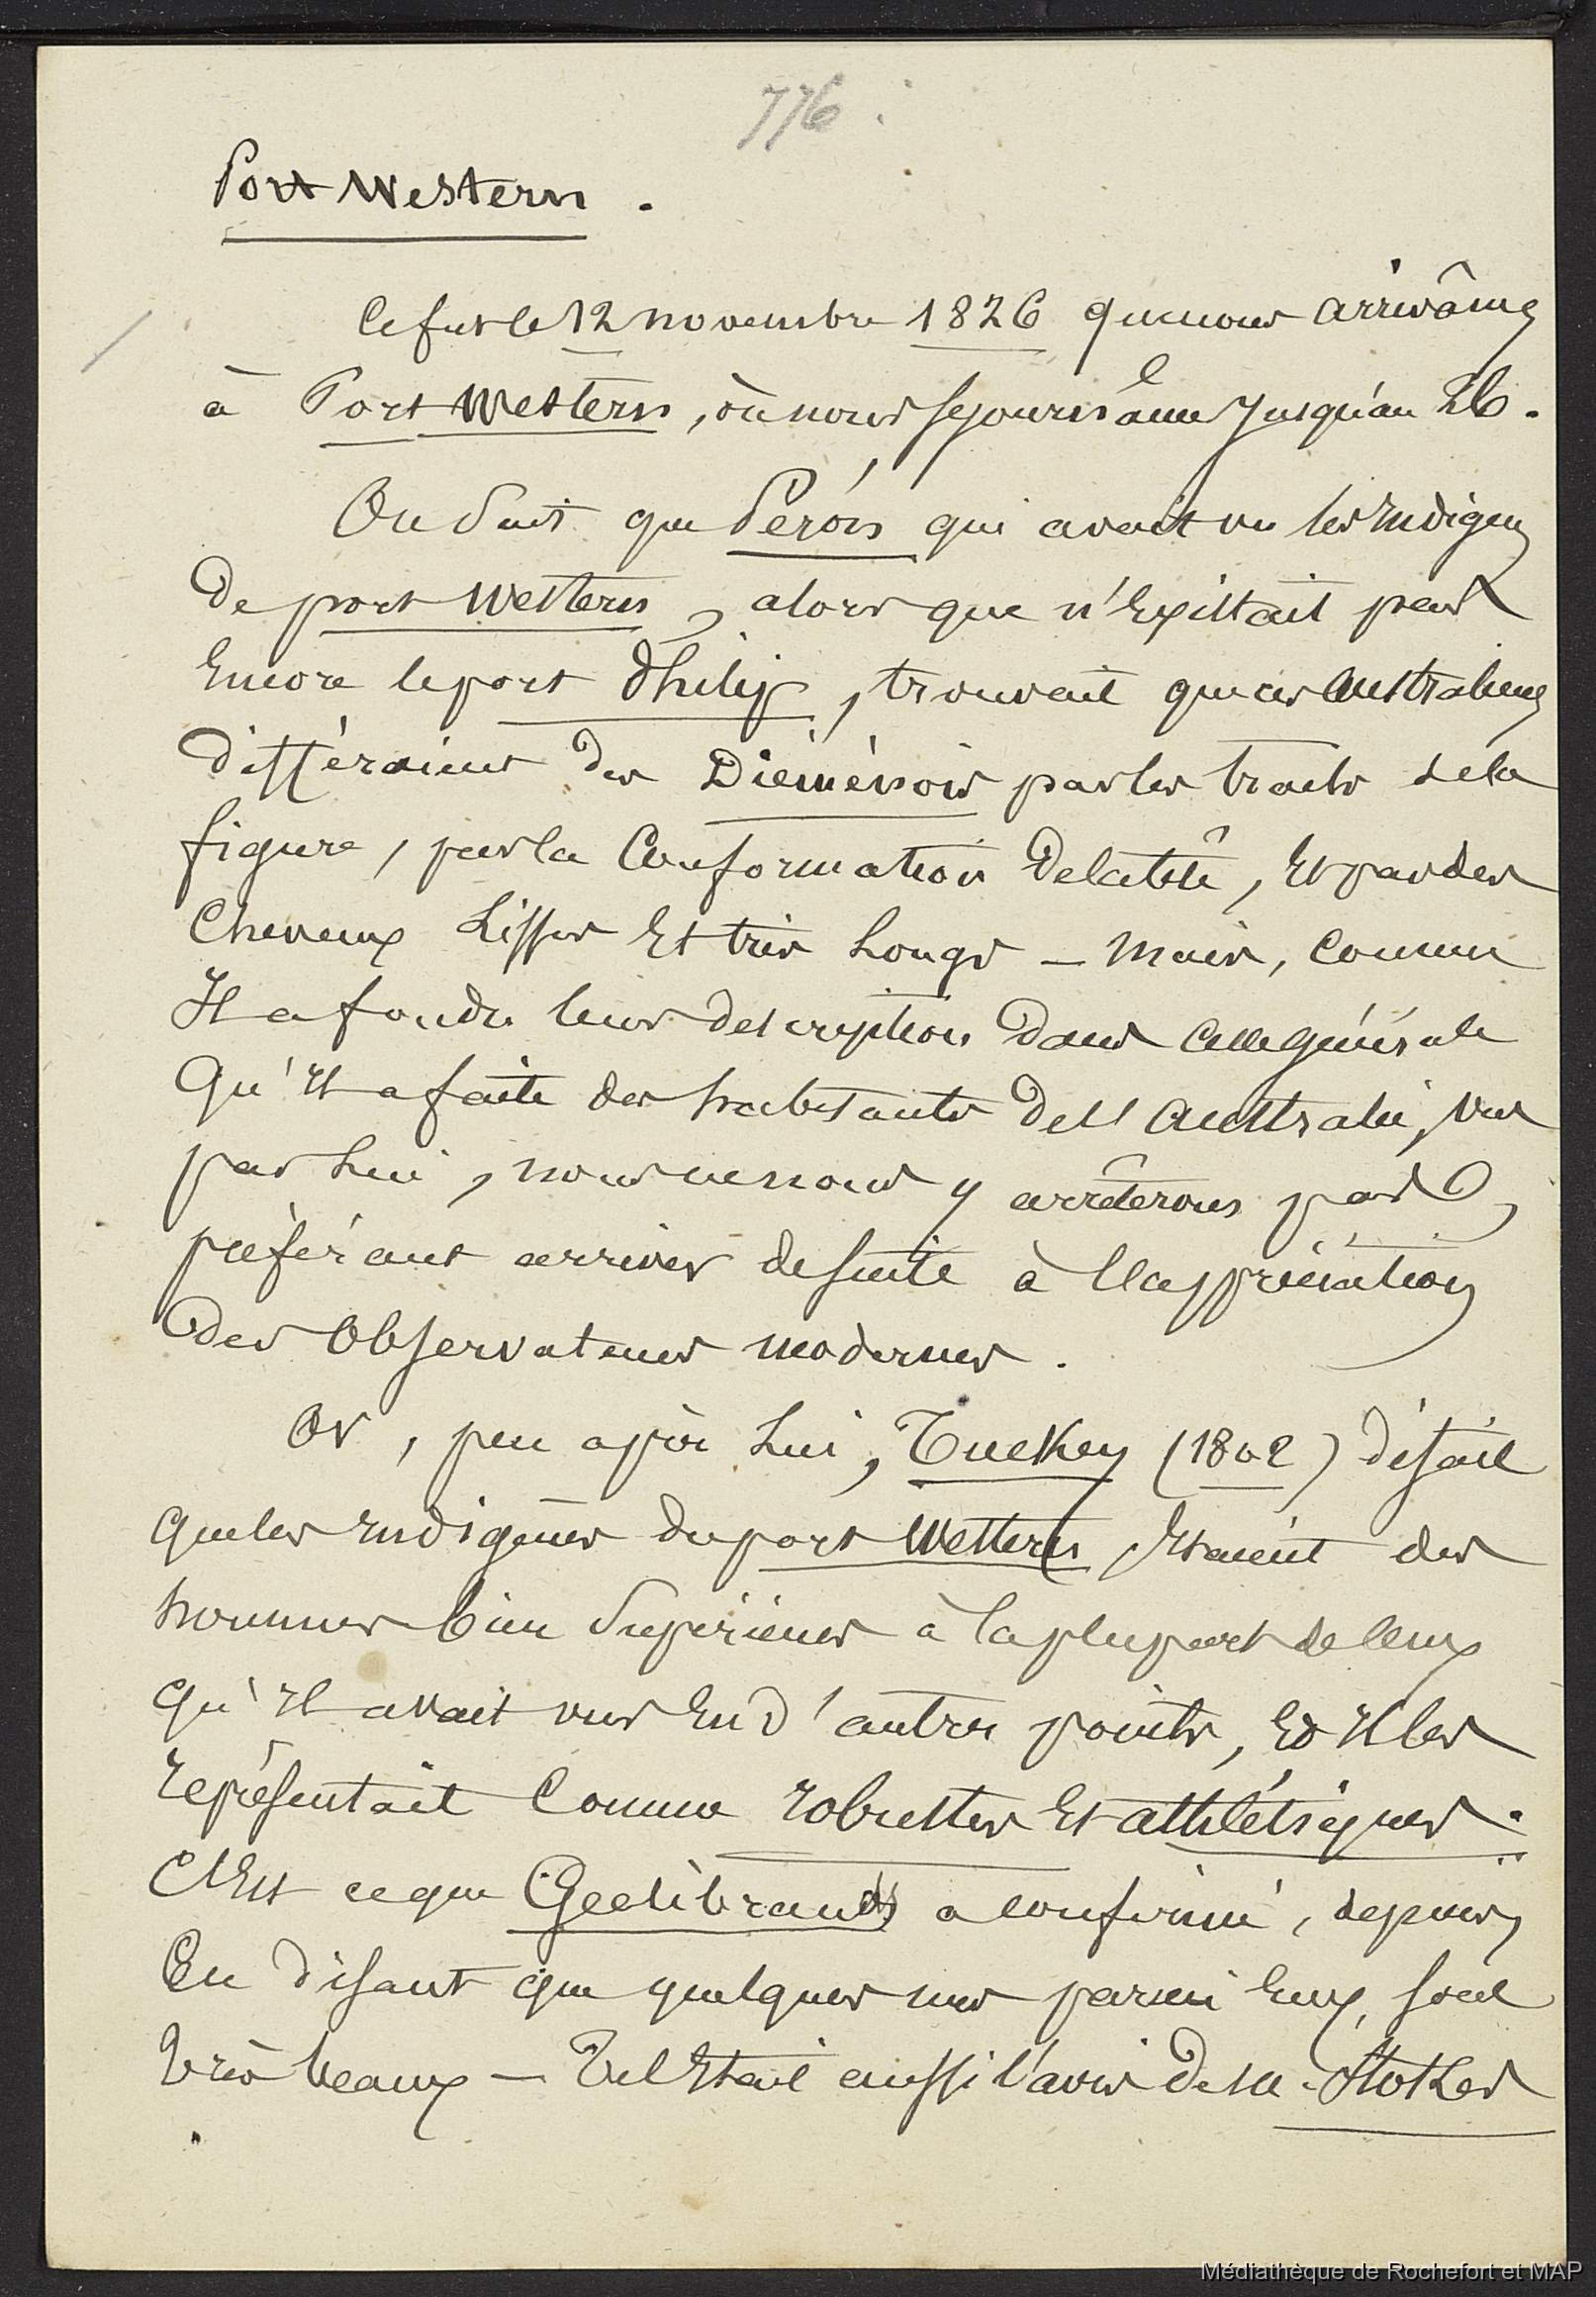 776.
Port Western.
Ce fut le 12 novembre 1826 que nous arrivâmes
à Port Western, où nous séjournâmes jusqu'au 26.
On sait que Péron qui avait vu les Indigènes
de port Western, alors que n'Existait pas
Encore le port Philip, trouvait que ces Australiens
différaient des Dièménois par les traits de la
figure, par la Conformation de la tête, Et par des
Cheveux Lisses Et très Longs – Mais, Comme
Il a fondu leur description dans celle générale
Qu'Il a faite des habitants de l'Australie, vus
par Lui, nous ne nous y arrêterons pas,
préférant arriver de suite à l'appréciation
des Observateurs modernes.
Or, peu après Lui, Tuckey (1802) disait
que les Indigènes du port Western Etaient des
hommes bien Supérieurs à la plupart de ceux
qu'Il avait vus En d'autres points, Et Il les
représentait Comme robustes Et athlétiques.
C'Est ce que Gellibrand a confirmé, depuis,
En disant que quelques uns parmi Eux, sont
très beaux – Tel Etait aussi l'avis de M. Stokes
Médiathèque de Rochefort et MAP